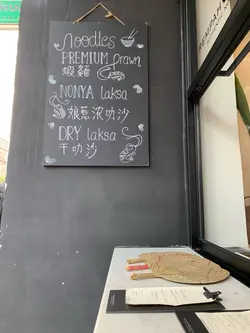 Noodles
PREMIUM Prawn
蝦麵
NONYA laksa
娘惹浓叻沙
DRY laksa
干叻沙
REMPAH